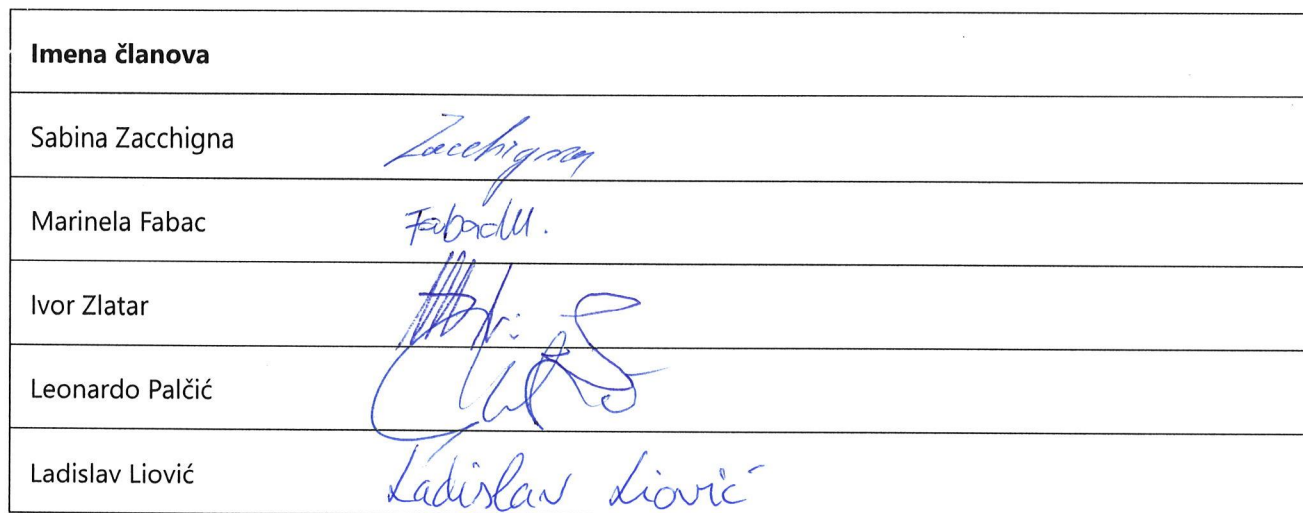 Imena članova
Sabina Zacchigna Zacchigna
Marinela Fabac Fabac M.
Ivor Zlatar
Leonardo Palčić
Ladislav Liović Ladislav Liović